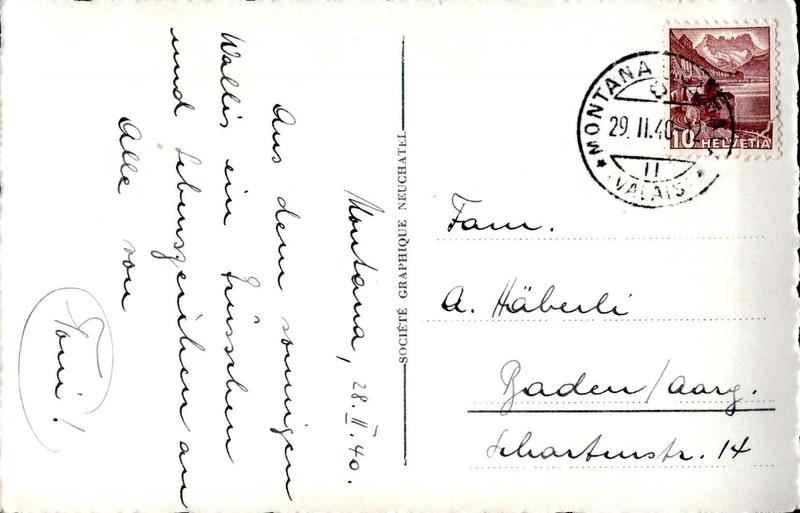 Montana, 28.II.40.
Aus dem sonnigen
Wallis ein Grüsschen
und Lebenszeichen an
Alle von
Toni!
SOCIÉTÉ GRAPHIQUE NEUCHATEL
MONTANA
29.II.40
11
(VALAIS)
10 HELVETIA
Fam.
A. Häberli
Baden/Aarg.
Schartenstr. 14